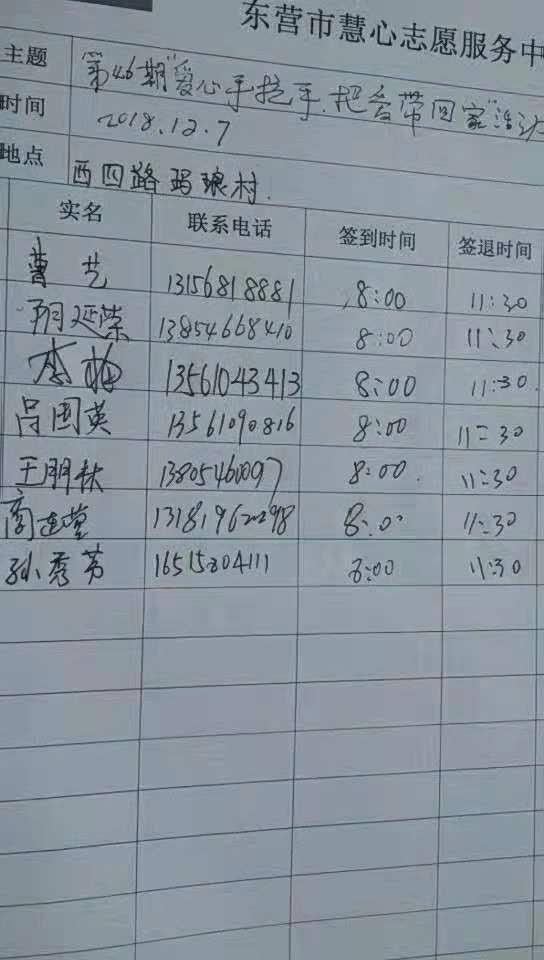 东营市慧心志愿服务中
主题 第46期"爱心手拉手.把爱带回家"活动
时间 2018.12.7
地点 西四路玛琅村.
实名 联系电话 签到时间 签退时间
曹艺 13156818881 8:00 11:30
延荣 13854668410 8:00 11:30
李梅 13561043413 8:00 11:30
吕国英 13561090816 8:00 11:30
王朋秋 13805460097 8:00 11:30
13181962298 8:0 11:30
孙秀芳 16515204111 8:00 11:30